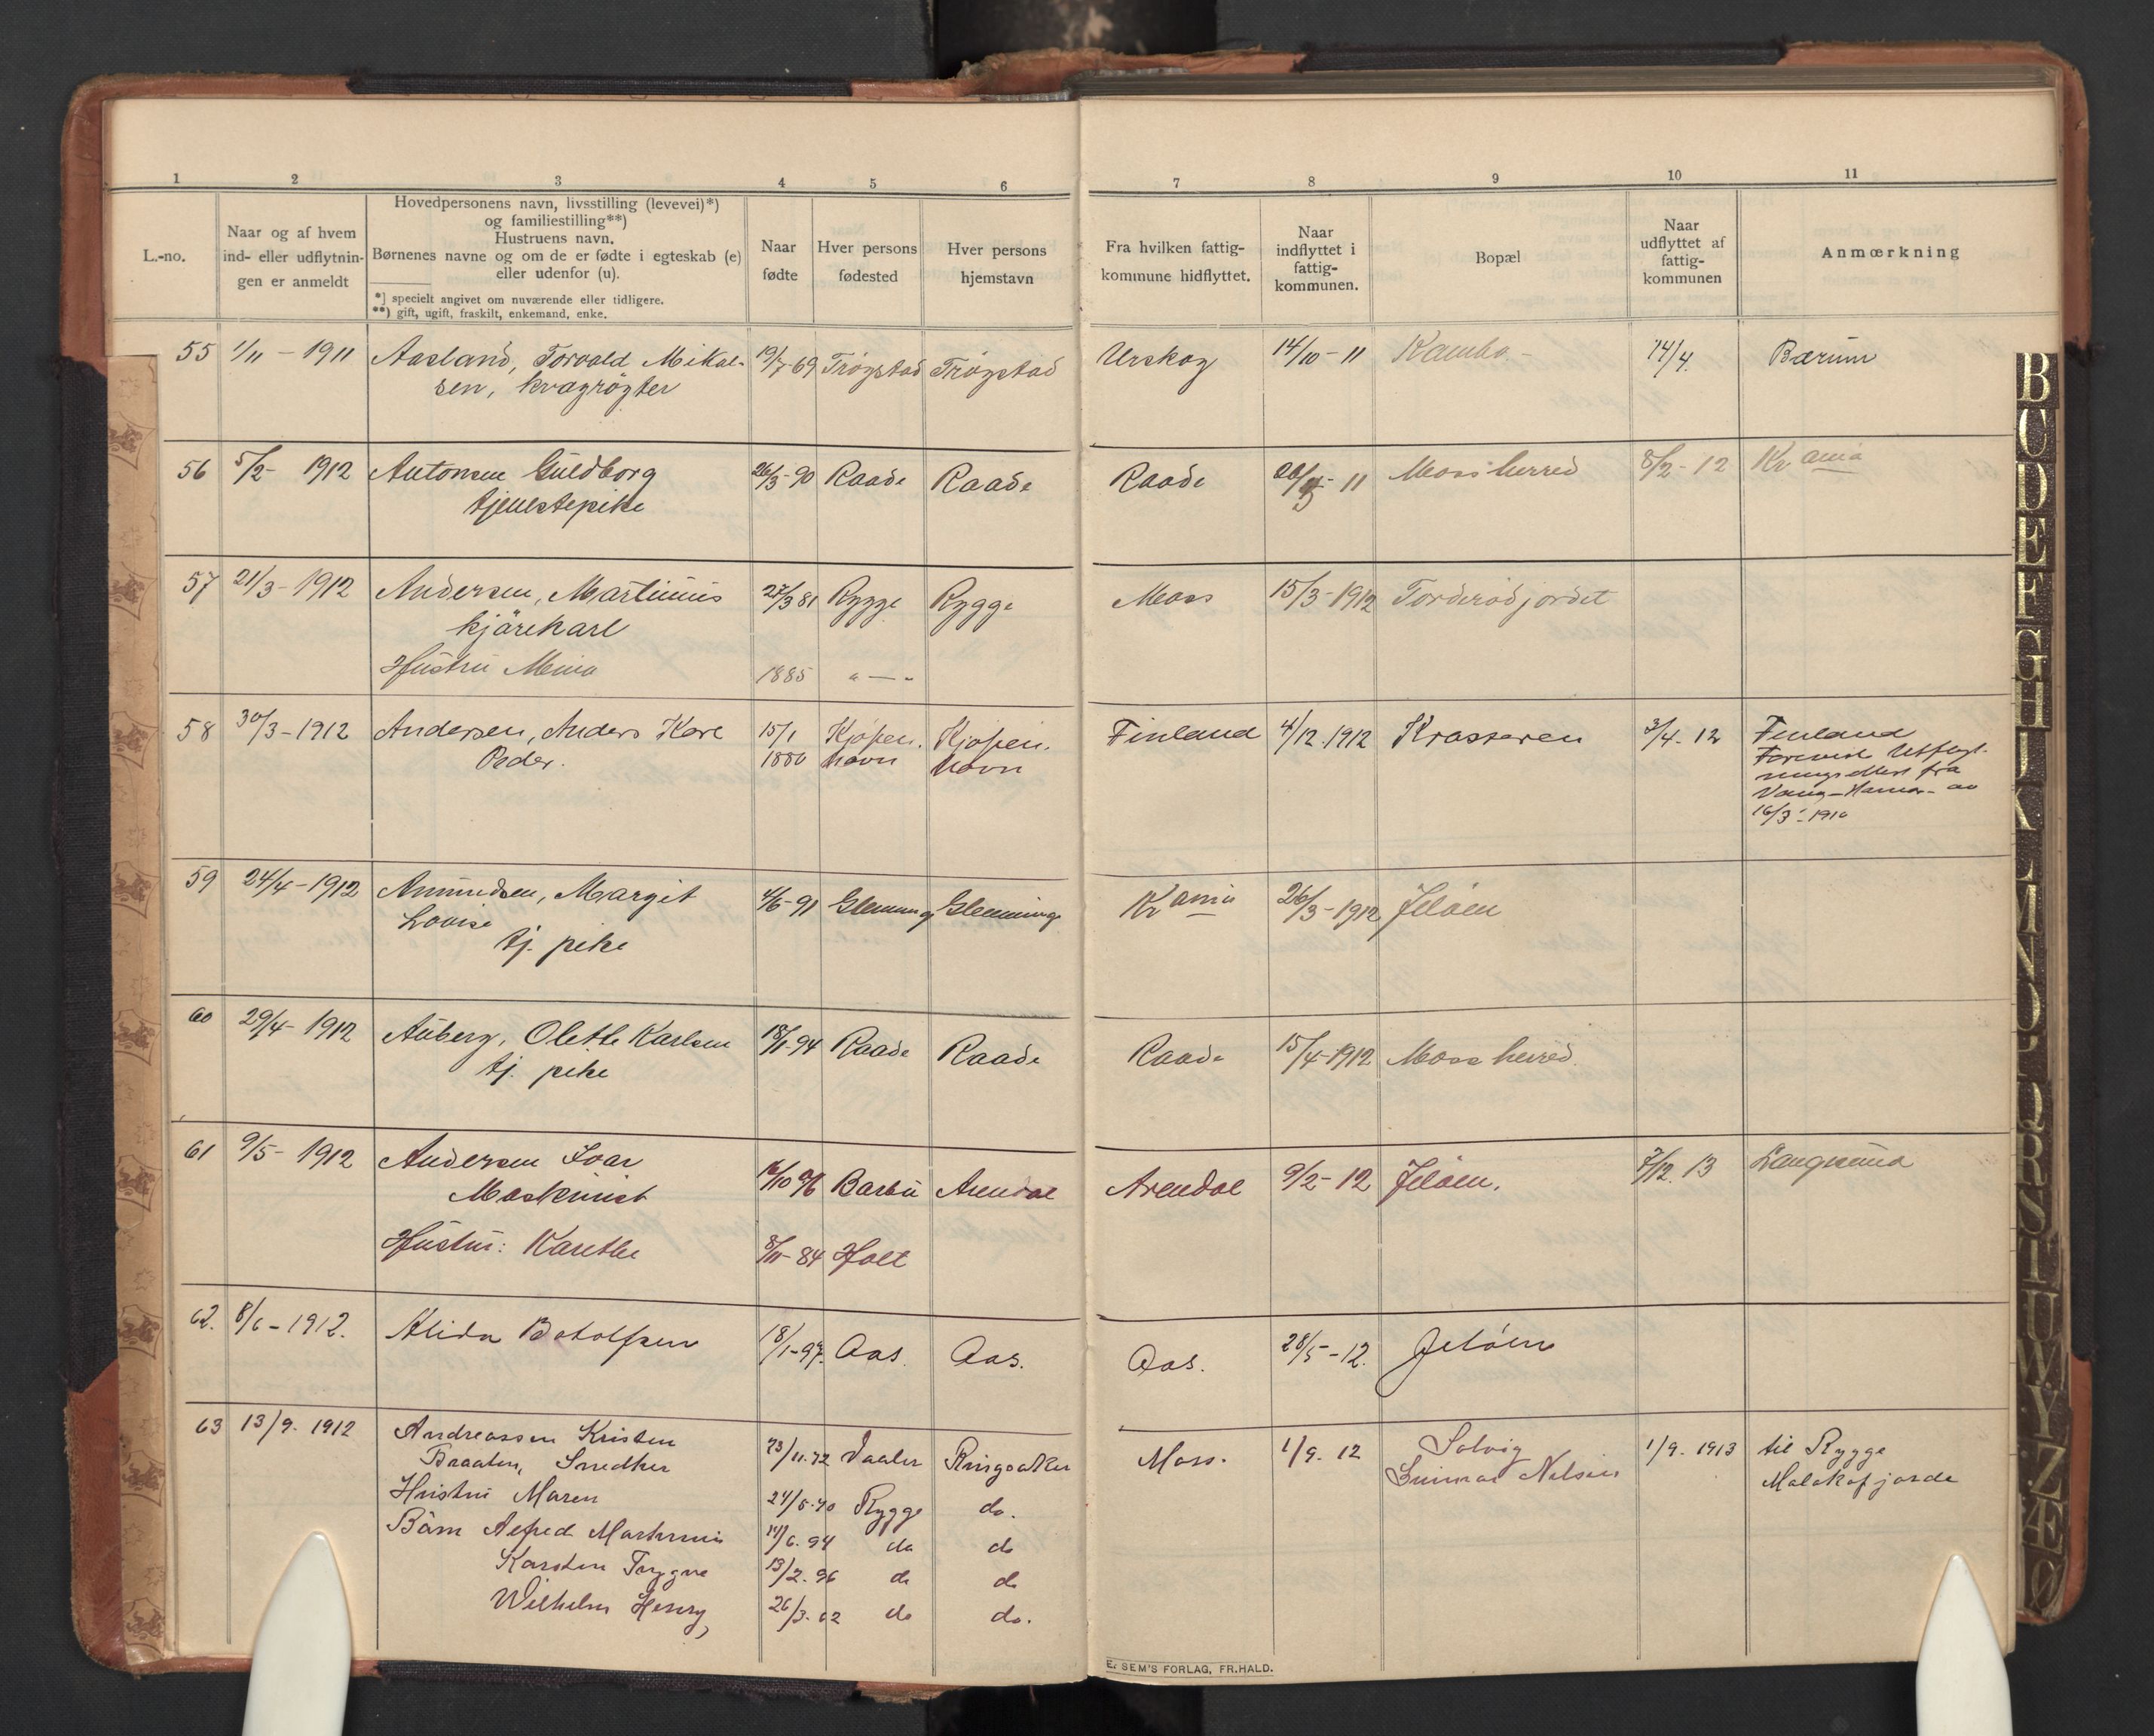 1 2 3 4 5 6 7 8 9 10 11
L.-no.
Naar og af hvem
ind- eller udflytnin-
gen er anmeldt
Hovedpersonens navn, livsstilling (levevei)*)
og familiestilling**)
Hustruens navn.
Børnenes navne og om de er fødte i egteskab (e)
eller udenfor (u).
*) specielt angivet om nuværende eller tidligere.
**) gift, ugift, fraskilt, enkemand, enke.
Naar
fødte
Hver persons
fødested
Hver persons
hjemstavn
Fra hvilken fattig-
kommune hidflyttet.
Naar
indflyttet i
fattig-
kommunen.
Bopæl
Naar
udflyttet af
fattig-
kommunen
Anmærkning
55 1/11 - 1911 Aasland, Torvald Mikal- 19/7 69 Trøgstad Trøgstad Urskog 14/10 - 11 Kambo - 14/4. Bærum
sen, kvægrøgter
56 5/2 - 1912 Antonsen Guldborg 26/3-90 Raade Raade Raade - 11 Moss herred 8/2 - 12 Kr ania
tjenestepike
57 21/3 - 1912 Andersen, Martinius 27/3 81 Rygge Rygge Moss 15/3 - 1912 Torderødjordet
kjørekarl
Hustru Mina 1885 " — "
58 30/3 - 1912 Andersen, Anders Karl 15/1 Kjøpen. Kjøpen. Finland 4/12 1912 Krosseren 3/4. 12 Finland
Peder. 1880 havn havn
fra
Vang - Hamar - av
16/3 - 1910
59 24/4 - 1912 Amundsen, Margit 4/6 - 91 Glemming Glemminge Kr ania 26/3 - 1912 Jeløen
Lovise
tj. pike
60 29/4 - 1912 Auberg, Olethe Karlsen 18/11-94 Raade Raade Raade 15/4-1912 Moss herred
tj. pike
61 9/5 - 1912 Andersen Ivar 16/10 76 Barbu Arendal Arendal 9/2 - 12 Jeløen. 7/12. 13 Langesund
Maskinist
Hustru: Karethe 8/11- 84 Holt
62. 8/6 - 1912. Alida Botolfsen 18/1-97. Aas. Aas. Aas. 28/5 - 12. Jeløen
63 13/9. 1912 Andreassen Kristen 23/11.72 Vaaler Ringsaker Moss. 1/9. 12 Solvig 1/9. 1913 til Rygge
Braaten, Snedker Gunnar Nilsen Malakofjorde
Hustru Maren 24/5.70 Rygge do.
Børn Alfred Martinius 14/6. 94 do do
Karsten Trygve 13/2. 96 do do
Wilhelm Henry, 26/3. 02 do do.
E. SEM'S FORLAG, FR.HALD.
B
C
D
E
F
G
H
I
K
L
M
N
O
P
Q
R
S
T
U
W
Y
Z
Æ
Ø